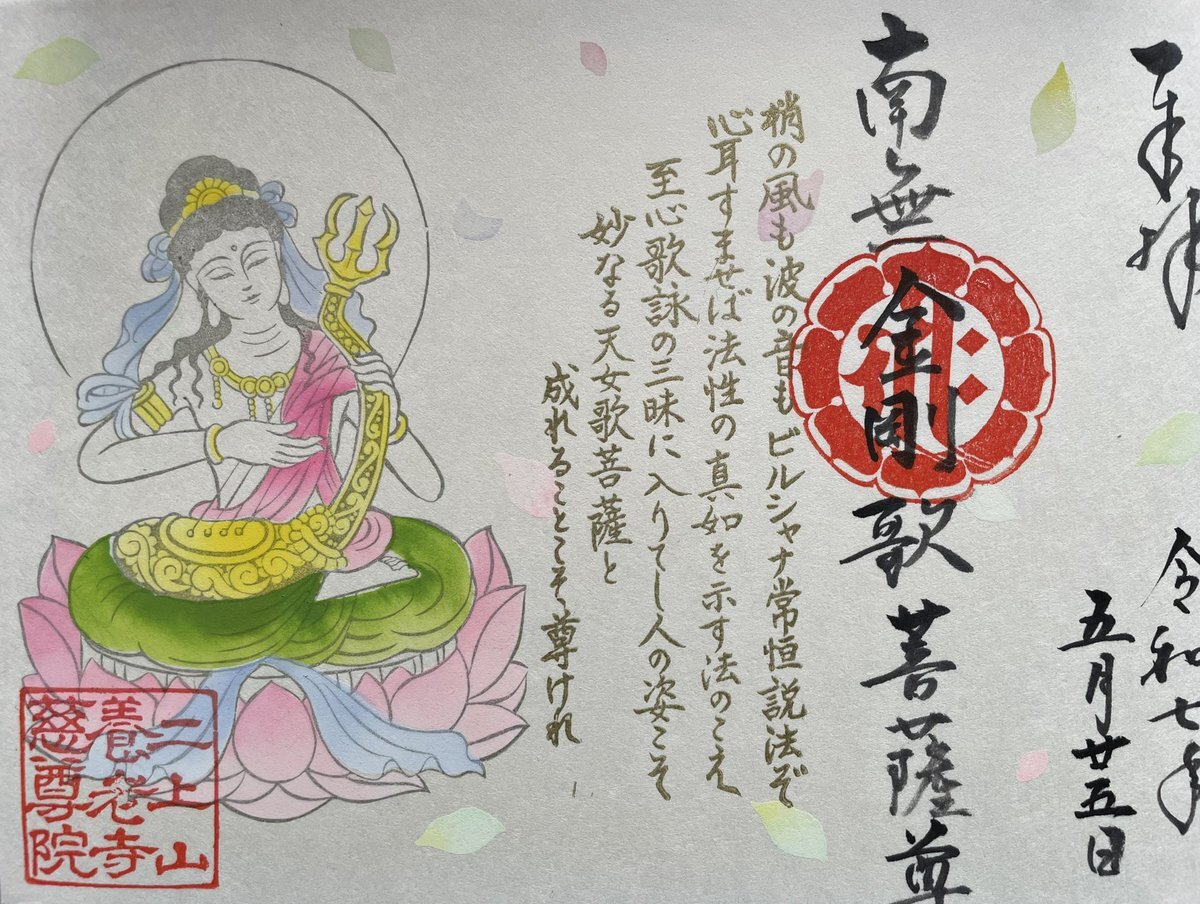 奉拝
令和七年
五月廿五日
南無金剛歌菩薩尊
梢の風も波の音も ビルシャナ常恒説法ぞ
心耳すませば法性の真如を示す法のこえ
至心歌詠の三昧に入りてし人の姿こそ
妙なる天女歌菩薩と
成れることこそ尊けれ
二上山
養老寺
慈尊院